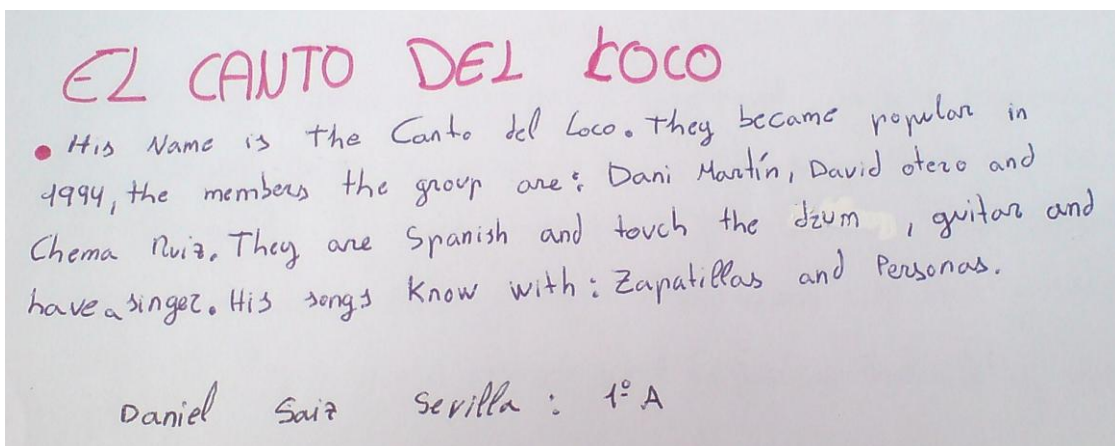 EL CANTO DEL LOCO
• His Name is the Canto del Loco. They became popular in
1994, the members the group are: Dani Martín, David otero and
Chema Ruiz. They are Spanish and touch the drum , guitar and
have a singer. His songs Know with: Zapatillas and Personas.
Daniel Saiz Sevilla : 1º A